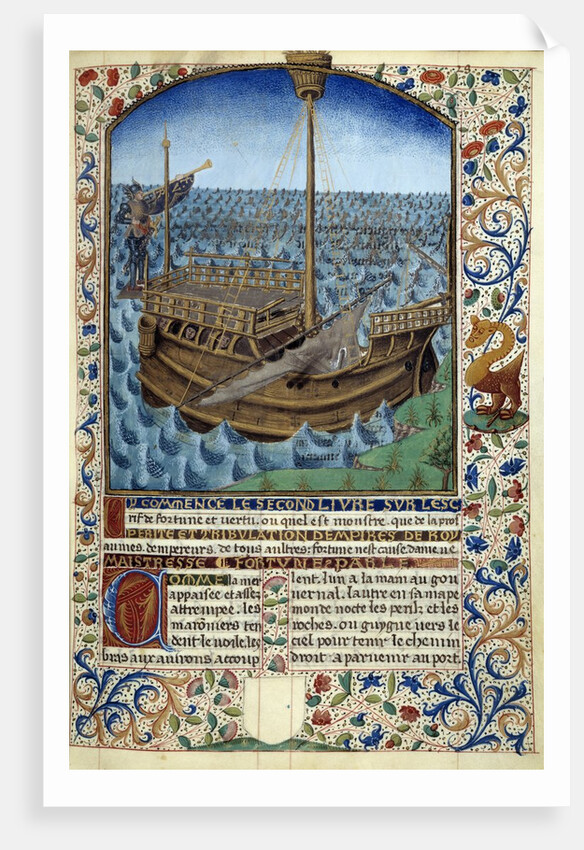 CY COMMENCE LE SECOND LIVRE SUR LESC
rif de fortune et vertu, ou quel est monstre, que de la prof
PERITE ET TRIBULATION DEMPIRES DE ROY
aumes, dempereurs, de tous aultres; fortune nest cause, dame, ne
MAISTRESSE FORTUNE PARLE
COMME la mer
appaisee et assez
attrempee, les
maroniers ten
dent le voile, les
bras aux avirons accoup
lent, lun a la main au gou
vernal, laultre en sa mape
monde nocte les perilz et les
roches, ou guygne vers le
ciel pour tenir le chemin
droit a parvenir au port,